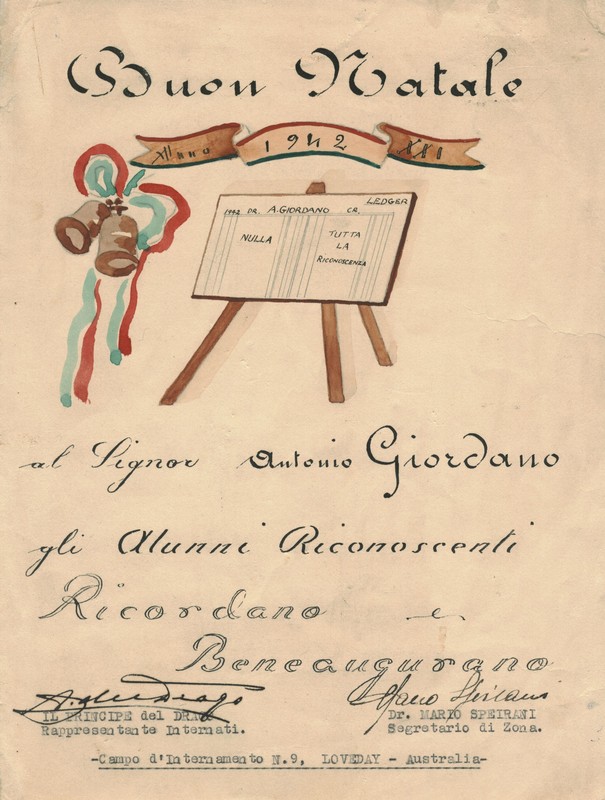 Buon Natale
Anno 1942 XXI
LEDGER
1942 DR. A. GIORDANO CR.
NULLA
TUTTA
LA
RICONOSCENZA
al Signor Antonio Giordano
gli Alunni Riconoscenti
Ricordano e
Beneaugurano
IL PRINCIPE del DRAGO
Rappresentante Internati.
Dr. MARIO SPEIRANI
Segretario di Zona.
-Campo d'Internamento N.9, LOVEDAY - Australia-